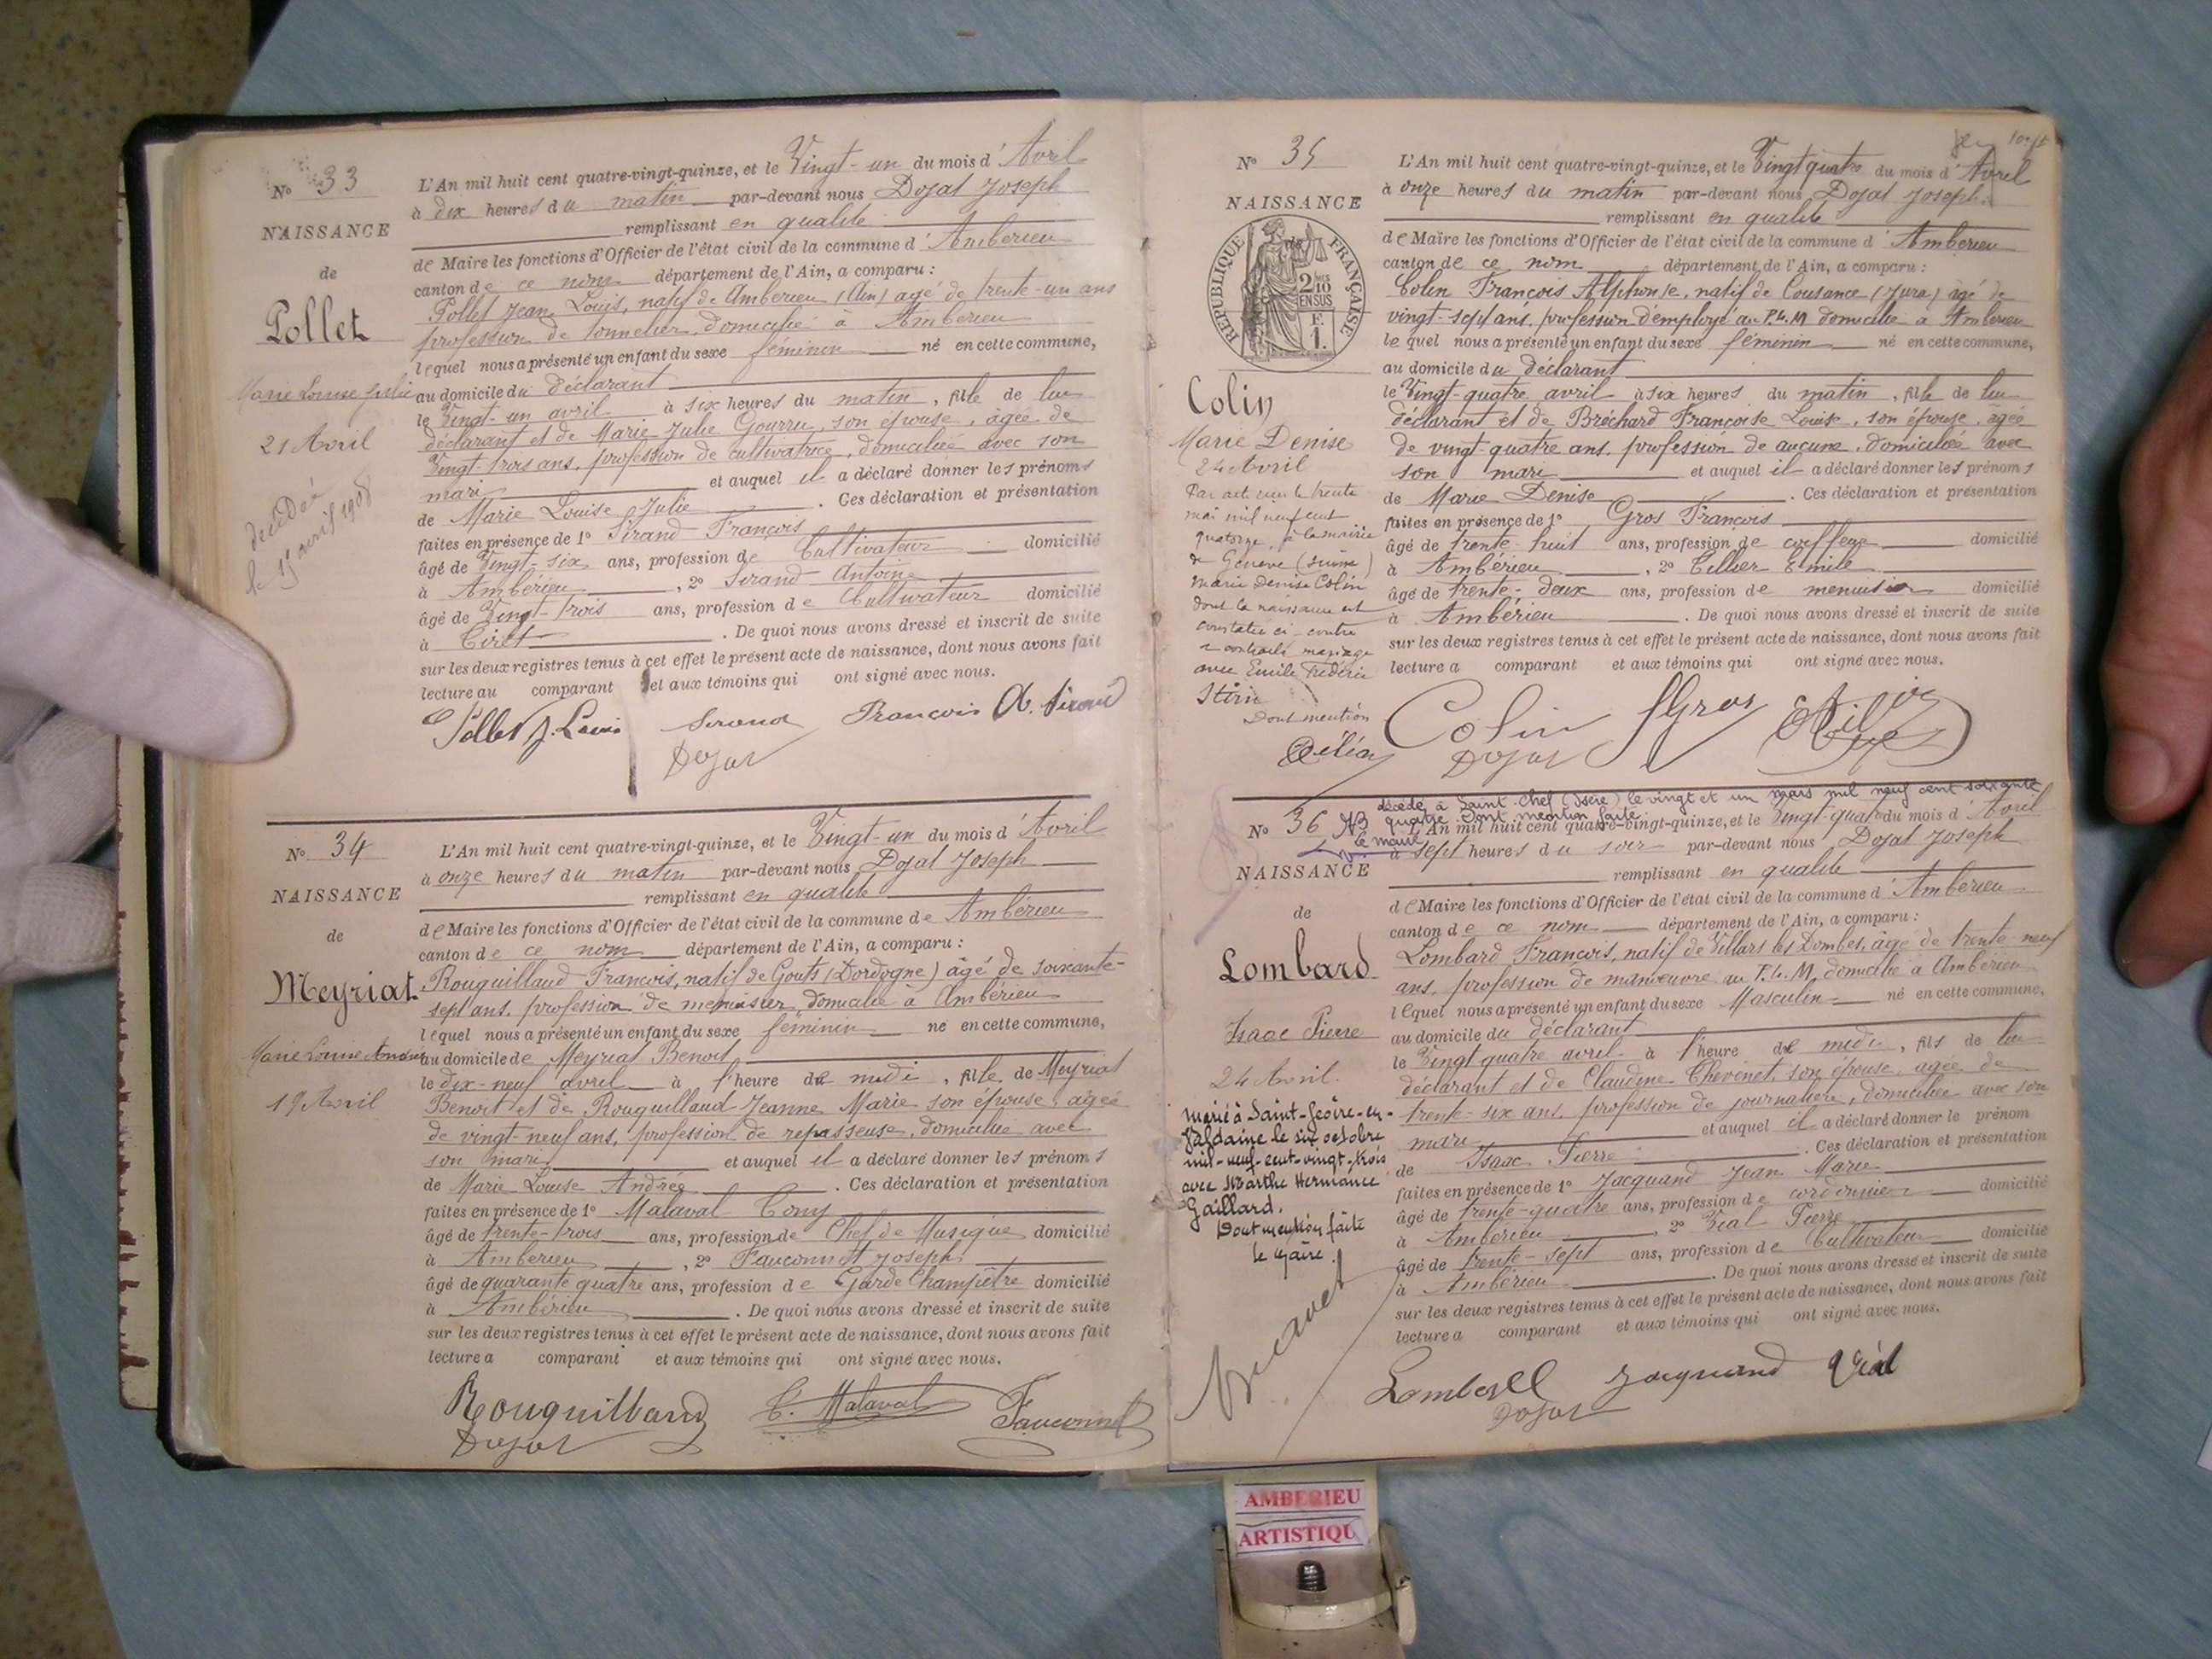 No 33
NAISSANCE
de
Pollet
Marie Louise Julie
21 Avril
décédée
le 15 avril 1908
L'An mil huit cent quatre-vingt-quinze, et le Vingt-un du mois d'Avril
à dix heures du matin par-devant nous Dojat Joseph
remplissant en qualité
de Maire les fonctions d'Officier de l'état civil de la commune d'Ambérieu
canton de ce nom département de l'Ain, a comparu :
Pollet Jean Louis, natif de Ambérieu (Ain) agé de trente-un ans
profession de tonnelier, domicilié à Ambérieu
lequel nous a présenté un enfant du sexe féminin né en cette commune,
au domicile du déclarant
le Vingt-un avril à six heures du matin, fille de lui
déclarant et de Marie Julie Gourru, son épouse, âgée de
Vingt-trois ans, profession de cultivatrice, domiciliée avec son
mari et auquel il a déclaré donner les prénoms
de Marie Louise Julie. Ces déclaration et présentation
faites en présence de 1° Sirand François
âgé de Vingt-six ans, profession de Cultivateur domicilié
à Ambérieu, 2° Sirand Antoine
âgé de Vingt-trois ans, profession de Cultivateur domicilié
à Tiret. De quoi nous avons dressé et inscrit de suite
sur les deux registres tenus à cet effet le présent acte de naissance, dont nous avons fait
lecture au comparant et aux témoins qui ont signé avec nous.
Pollet J. Louis Sirand François A. Sirand
Dojat
No 34
NAISSANCE
de
Meyriat
Marie Louise Andrée
19 Avril
L'An mil huit cent quatre-vingt-quinze, et le Vingt-un du mois d'Avril
à onze heures du matin par-devant nous Dojat Joseph
remplissant en qualité
de Maire les fonctions d'Officier de l'état civil de la commune de Ambérieu
canton de ce nom département de l'Ain, a comparu :
Rouquillaud François, natif de Gouts (Dordogne) âgé de soixante-
sept ans, profession de menuisier, domicilié à Ambérieu
lequel nous a présenté un enfant du sexe féminin né en cette commune,
au domicile de Meyriat Benoit
le dix-neuf avril à l'heure de midi, fille de Meyriat
Benoit et de Rouquillaud Jeanne Marie son épouse, agée
de vingt-neuf ans, profession de repasseuse, domiciliée avec
son mari et auquel il a déclaré donner les prénoms
de Marie Louise Andrée. Ces déclaration et présentation
faites en présence de 1° Malaval Tony
âgé de trente-trois ans, profession de Chef de Musique domicilié
à Ambérieu, 2° Fauconnet Joseph
âgé de quarante quatre ans, profession de Garde Champêtre domicilié
à Ambérieu. De quoi nous avons dressé et inscrit de suite
sur les deux registres tenus à cet effet le présent acte de naissance, dont nous avons fait
lecture a comparant et aux témoins qui ont signé avec nous.
Rouquillaud T. Malaval Fauconnet
Dojat
No 35
NAISSANCE
RÉPUBLIQUE FRANÇAISE
2/10 EN SUS
F. 1.
Colin
Marie Denise
24 Avril
Par acte reçu le trente
mai mil neuf cent
quatorze, à la mairie
de Genève (suisse)
Marie Denise Colin
dont la naissance est
constatée ci-contre
a contracté mariage
avec Emile Frédéric
Stirn
Dont mention
L'An mil huit cent quatre-vingt-quinze, et le Vingt quatre du mois d'Avril
à onze heures du matin par-devant nous Dojat Joseph
remplissant en qualité
de Maire les fonctions d'Officier de l'état civil de la commune d'Ambérieu
canton de ce nom département de l'Ain, a comparu :
Colin François Alphonse, natif de Cousance (Jura) âgé de
vingt-sept ans, profession d'employé au P.L.M domicilié à Ambérieu
lequel nous a présenté un enfant du sexe féminin né en cette commune,
au domicile du déclarant
le Vingt-quatre avril à six heures du matin, fille de lui
déclarant et de Bréchard Françoise Louise, son épouse, agée
de vingt-quatre ans, profession de aucune, domiciliée avec
son mari et auquel il a déclaré donner les prénoms
de Marie Denise. Ces déclaration et présentation
faites en présence de 1° Gros François
âgé de trente-huit ans, profession de coiffeur domicilié
à Ambérieu, 2° Tillier Emile
âgé de trente-deux ans, profession de menuisier domicilié
à Ambérieu. De quoi nous avons dressé et inscrit de suite
sur les deux registres tenus à cet effet le présent acte de naissance, dont nous avons fait
lecture a comparant et aux témoins qui ont signé avec nous.
Colin F Gros
Dojat
décédé à Saint-Chef (Isère) le vingt et un mars mil neuf cent soixante
quatre Dont mention faite
le maire
No 36
NAISSANCE
de
Lombard
Isaac Pierre
24 Avril.
Marié à Saint-Geoire-en-
Valdaine le six octobre
mil-neuf-cent-vingt-trois
avec Marthe Hermance
Gaillard.
Dont mention faite
le Maire.
L'An mil huit cent quatre-vingt-quinze, et le Vingt-quat du mois d'Avril
à sept heures du soir par-devant nous Dojat Joseph
remplissant en qualité
de Maire les fonctions d'Officier de l'état civil de la commune d'Ambérieu
canton de ce nom département de l'Ain, a comparu :
Lombard François, natif de Villars les Dombes, âgé de trente neuf
ans, profession de manœuvre au P.L.M, domicilié à Ambérieu
lequel nous a présenté un enfant du sexe Masculin né en cette commune,
au domicile du déclarant
le Vingt quatre avril à l'heure de midi, fils de lui
déclarant et de Claudine Chevenet, son épouse, agée de
trente-six ans, profession de journalière, domiciliée avec son
mari et auquel il a déclaré donner le prénom
de Isaac Pierre. Ces déclaration et présentation
faites en présence de 1° Jacquand Jean Marie
âgé de trente-quatre ans, profession de cordonnier domicilié
à Ambérieu, 2° Vial Pierre
âgé de trente-sept ans, profession de Cultivateur domicilié
à Ambérieu. De quoi nous avons dressé et inscrit de suite
sur les deux registres tenus à cet effet le présent acte de naissance, dont nous avons fait
lecture a comparant et aux témoins qui ont signé avec nous.
Lombard Jacquand Vial
Dojat
AMBERIEU
ARTISTIQU